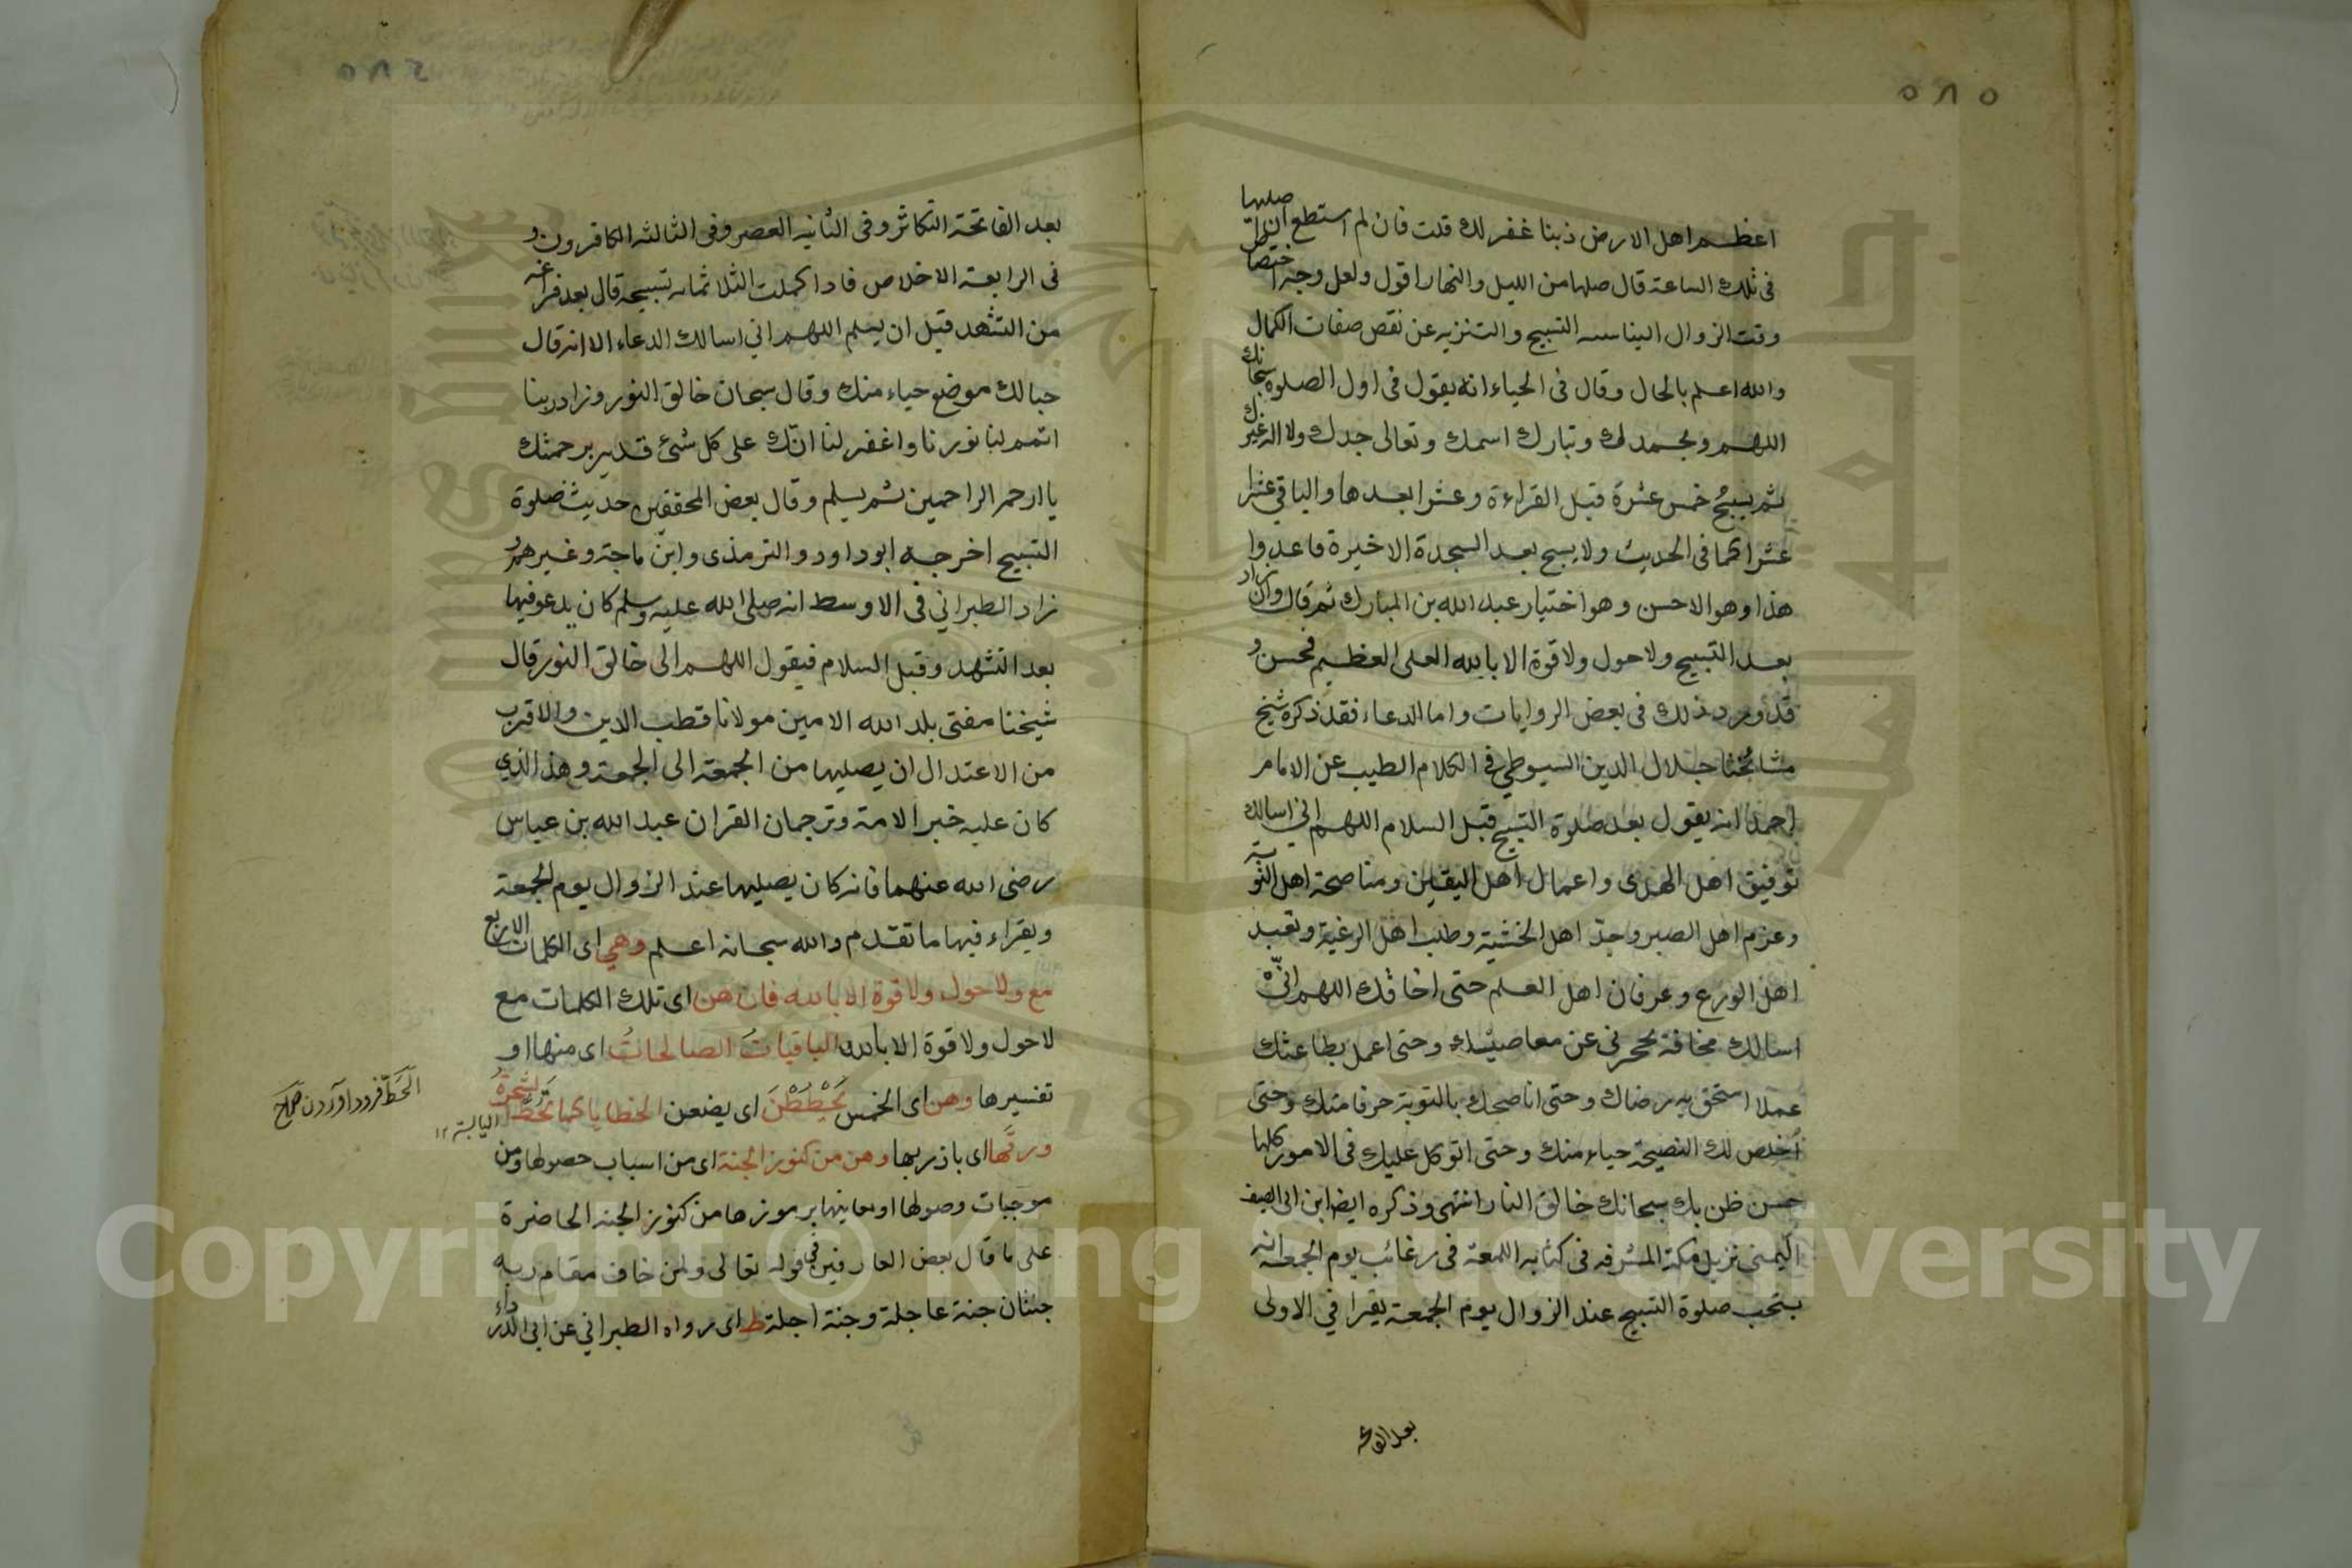 ٥٨٥
اعظم اهل الارض ذبنا غفر لك قلت فان لم استطع ان اصليها
فى تلك الساعة قال صلها من الليل والنهار اقول ولعل وجه اختصاص
وقت الزوال التسبيح والتنزيه عن نقص صفات الكمال
والله اعلم بالحال وقال فى الحياء انه يقول فى اول الصلوة سبحانك
اللهم وبحمدك وتبارك اسمك وتعالى جدك ولا اله غيرك
ثم يسبح خمس عشرة قبل القراءة وعشرا بعدها والباقى عشرا
عشرا كما فى الحديث ولا يسبح بعد السجدة الاخيرة قاعدوا
هذا وهو الاحسن وهو اختيار عبد الله بن المبارك ثم قال وان زاد
بعد التسبيح ولا حول ولا قوة الا بالله العلى العظيم فحسن و
قد ورد ذلك فى بعض الروايات واما الدعاء فقد ذكره شيخ
مشائخنا جلال الدين السيوطي فى الكلام الطيب عن الامام
احمد انه يقول بعد صلوة التسبيح قبل السلام اللهم اني اسالك
توفيق اهل الهدى واعمال اهل اليقين ومناصحة اهل التوبة
وعزم اهل الصبر وجدّ اهل الخشية وطلب اهل الرغبة وتعبد
اهل الورع وعرفان اهل العلم حتى اخافك اللهم انّى
اسالك مخافة تحجرنى عن معاصيك وحتى اعمل بطاعتك
عملا استحق به رضاك وحتى اناصحك بالتوبة خوفا منك وحتى
اخلص لك النصيحة حياء منك وحتى اتوكل عليك فى الامور كلها
حسن ظن بك سبحانك خالق النار انتهى وذكره ايضا ابن ابى الصيف
اليمنى نزيل مكة المشرفه فى كتابه اللمعة فى رغائب يوم الجمعة انه
يستحب صلوة التسبيح عند الزوال يوم الجمعة يقرا في الاولى
بعد الفاتحه
بعد الفاتحة التكاثر وفى الثانيه العصر وفى الثالثه الكافرون و
فى الرابعة الاخلاص فاذا كملت الثلاثمائه تسبيحه قال بعد فراغه
من التشهد قبل ان يسلم اللهم اني اسالك الدعاء الا انه قال
حبا لك موضع حياء منك وقال سبحان خالق النور وزاد ربنا
اتمم لنا نورنا واغفر لنا انّك على كل شئ قدير برحمتك
يا ارحم الراحمين ثم يسلم وقال بعض المحققين حديث صلوة
التسبيح اخرجه ابو داود والترمذى وابن ماجة وغيرهم و
زاد الطبراني فى الاوسط انه صلى الله عليه وسلم كان يدعو فيها
بعد التشهد وقبل السلام فيقول اللهم الى خالق النور قال
شيخنا مفتى بلد الله الامين مولانا قطب الدين والاقرب
من الاعتدال ان يصليها من الجمعة الى الجمعة وهذا الذي
كان عليه خبر الامة وترجمان القران عبد الله بن عباس
رضى الله عنهما فانه كان يصليها عند الزوال يوم الجمعة
ويقراء فيها ما تقدم والله سبحانه اعلم وهي اى الكلمات الاربع
مع ولا حول ولا قوة الا بالله فان هن اى تلك الكلمات مع
لا حول ولا قوة الا بالله الباقيات الصالحات اى منها او
تفسيرها وهن اى الخمس يَحْطُطْنَ اى يضعن الخطايا كما تَحُطُّ الشجرةُ
ورقَها اى باذن ربها وهن من كنوز الجنة اى من اسباب حصولها ومن
موجبات وصولها او معانيها برموزها من كنوز الجنه الحاضرة
على ما قال بعض العارفين فى قوله تعالى ولمن خاف مقام ربه
جنتان جنة عاجلة وجنة اجلة ط اى رواه الطبراني عن ابى الدرداء
الحَطّ فرود اوردن صراح
اليابسة ١٢